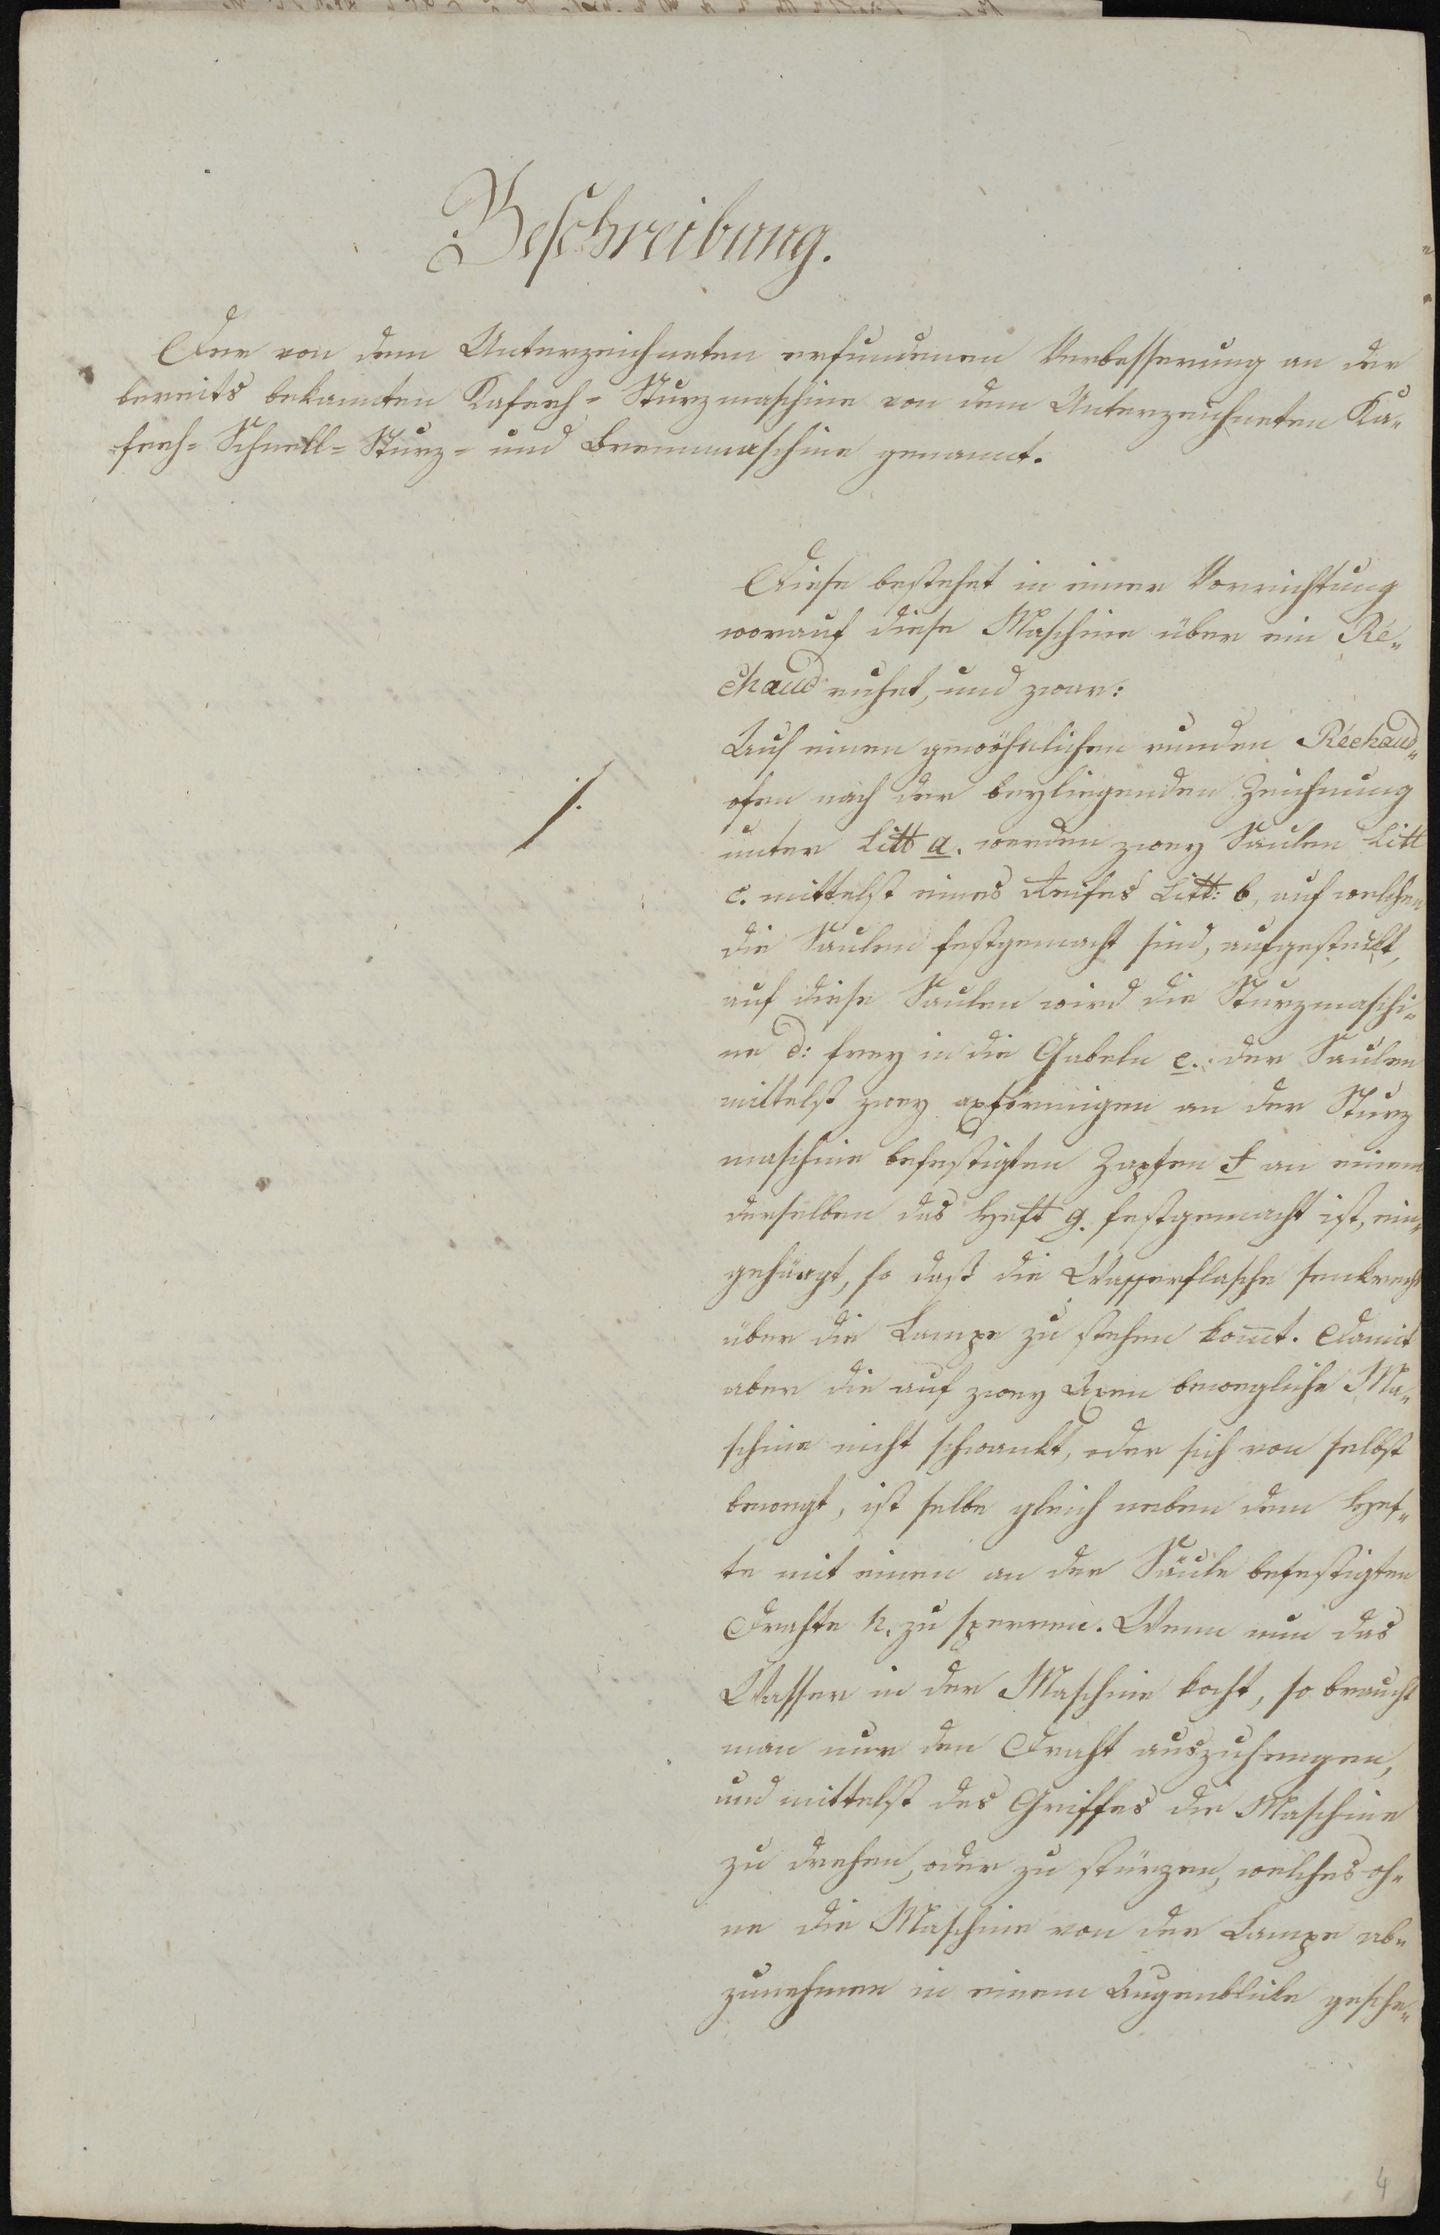 Beschreibung.
Der von dem Unterzeichneten erfundenen Verbesserung an der
bereits bekannten Kafeeh-Sturzmaschine von dem Unterzeichneten Ka„
feeh-Schnell-Sturz- und Brennmaschine genannt.
Diese bestehet in einer Vorrichtung
worauf diese Maschine über ein Ré„
chaud ruhet, und zwar:
Auf einen gewöhnlichen runden Réchaud„
ofen nach der beyliegenden Zeichnung
1.
unter Litt a. werden zwey Säulen Litt
c. mittelst eines Reifes Litt: b, auf welchen
die Säulen festgemacht sind, aufgestellt,
auf diese Säulen wird die Sturzmaschi„
ne d: frey in die Gabeln e. der Säulen
mittelst zwey axförmigen an der Sturz
maschine befestigten Zapfen f an einem
derselben das Heft g. festgemacht ist, ein„
gehängt, so daß die Wasserflasche senkrecht
über die Lampe zu stehen kommt. Damit
aber die auf zwey Axen bewegliche Ma„
schine nicht schwankt, oder sich von selbst
bewegt, ist selbe gleich neben dem Hef„
te mit einen an der Säule befestigten
Drahte h. zu sperren. Wenn nun das
Wasser in der Maschine kocht, so braucht
man nur den Draht auszuhengen,
und mittelst des Griffes die Maschine
zu drehen, oder zu stürzen, welches oh„
ne die Maschine von der Lampe ab„
zunehmen in einem Augenblicke gesche„
4